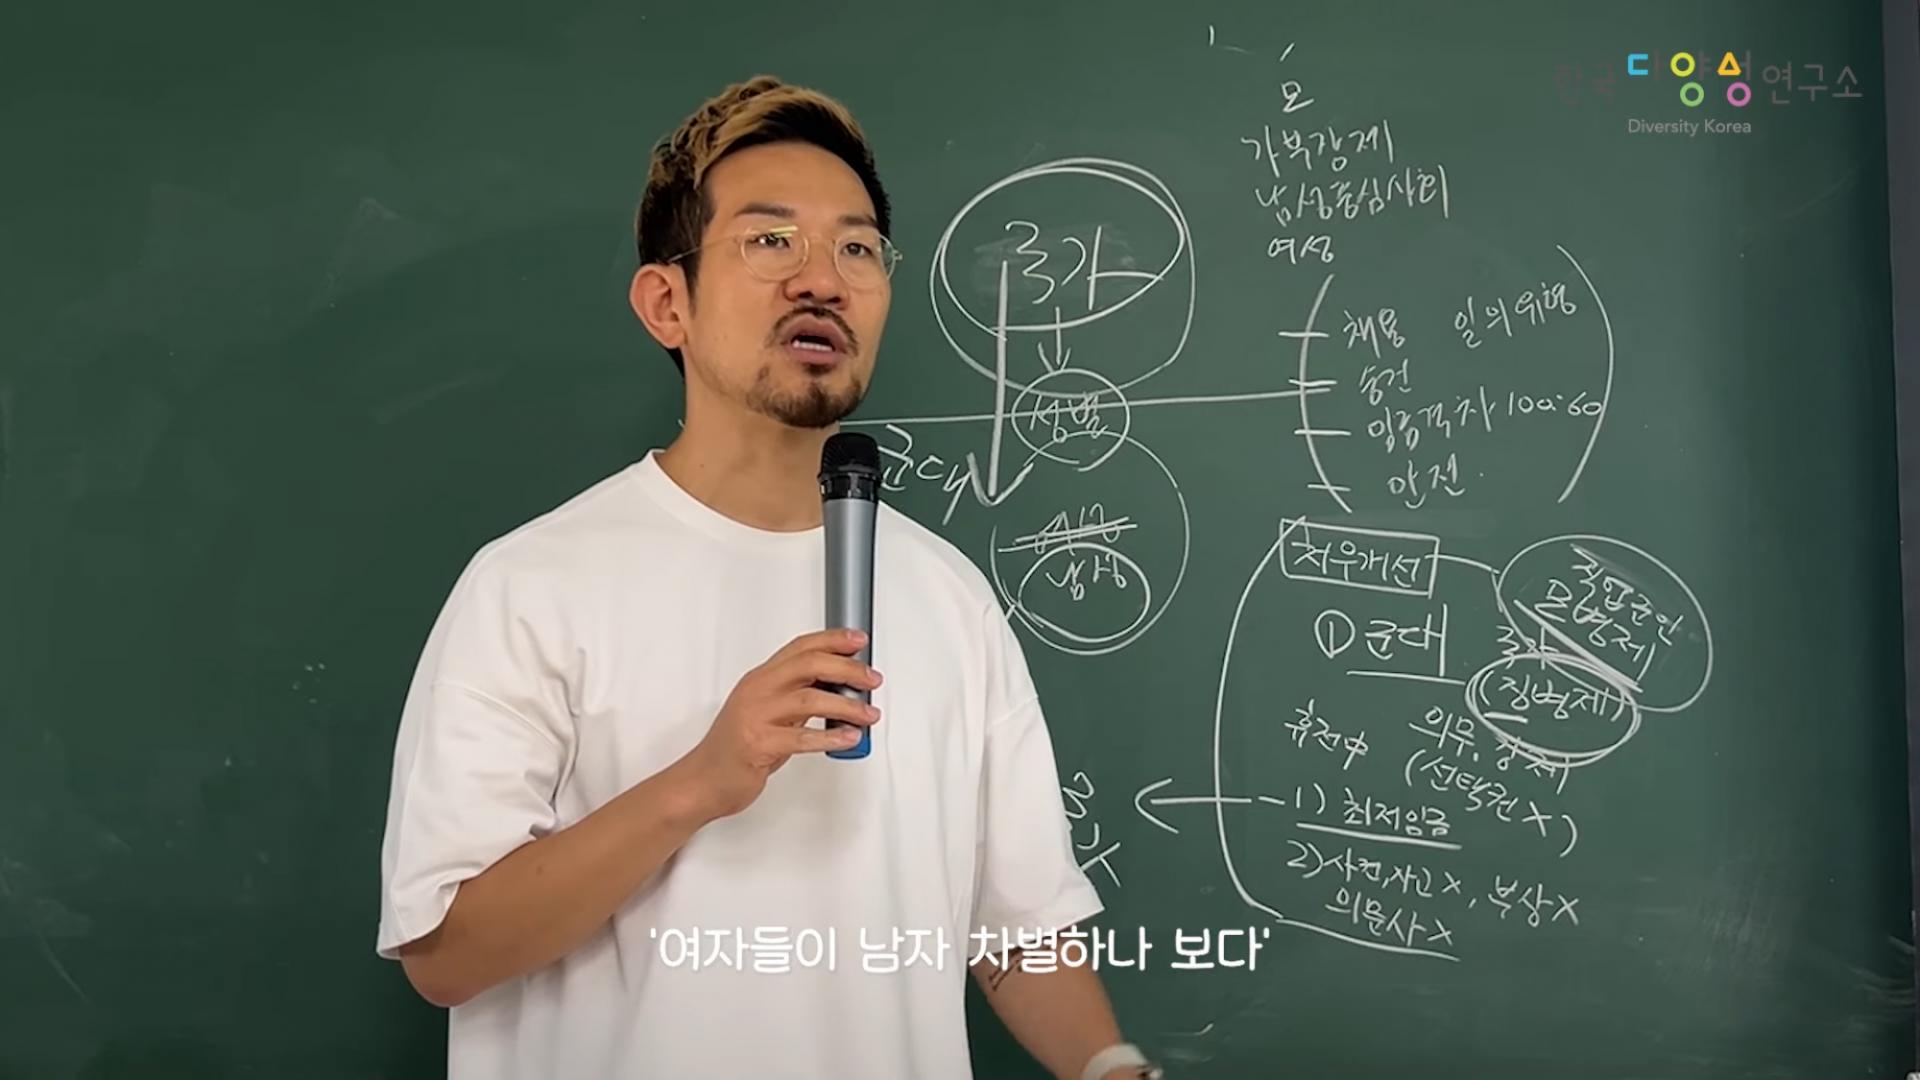 한국다양성연구소
Diversity Korea
모
가부장제
남성중심사회
여성
국가
채용 일의 위험
승진
임금격차 100:60
안전
성별
군대
남성
처우개선
직업군인
모병제
① 군대
국가
(징병제)
휴전中
의무, 강제
(선택권 X)
1) 최저임금
2) 사건, 사고 X, 부상 X
의문사 X
'여자들이 남자 차별하나 보다'